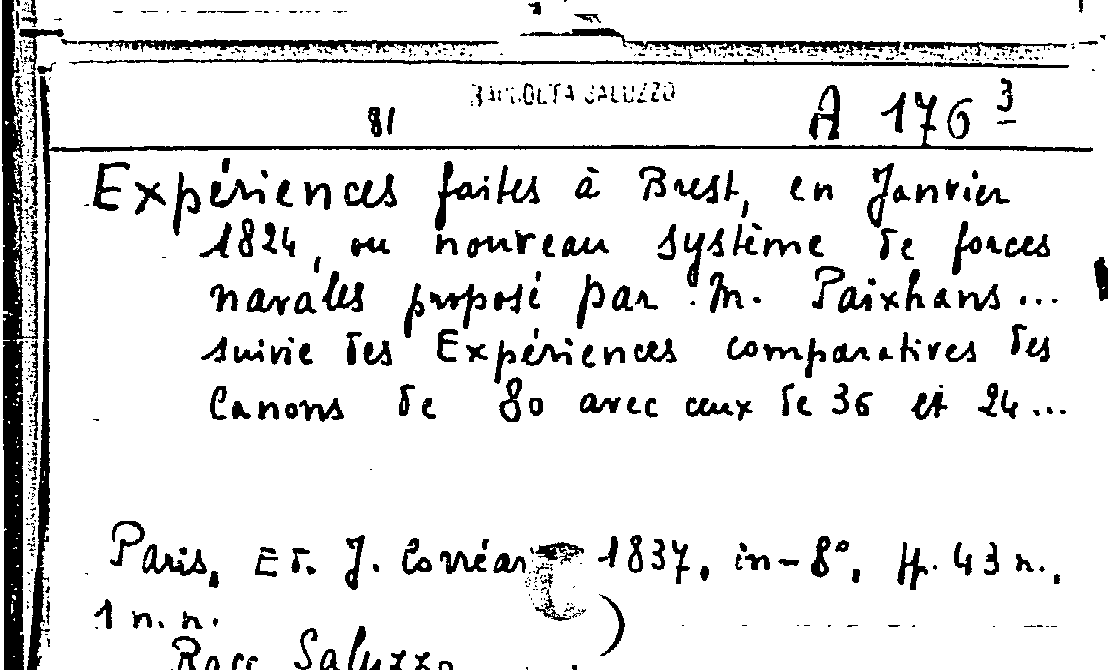 RACCOLTA SALUZZO
81 A 176 3
Expériences faites à Brest, en Janvier
1824, ou nouveau système de forces
navales proposé par M. Paixhans...
suivie des Expériences comparatives des
Canons de 80 avec ceux de 36 et 24...
Paris, Ed. J. Corréard 1837, in-8°, ff. 43 n.,
1 n. n.
Racc Saluzzo